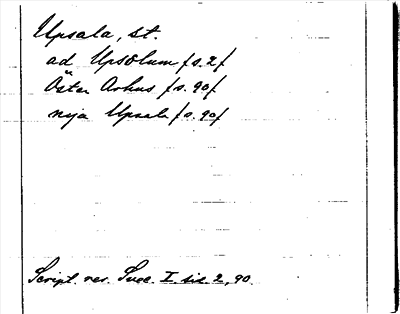 Upsala, st.
ad Upsölum /s. 2/
Öster Arhus /s. 90/
nyja Upsala /s. 90/
Script. rer. Suec. I. sid. 2, 90.